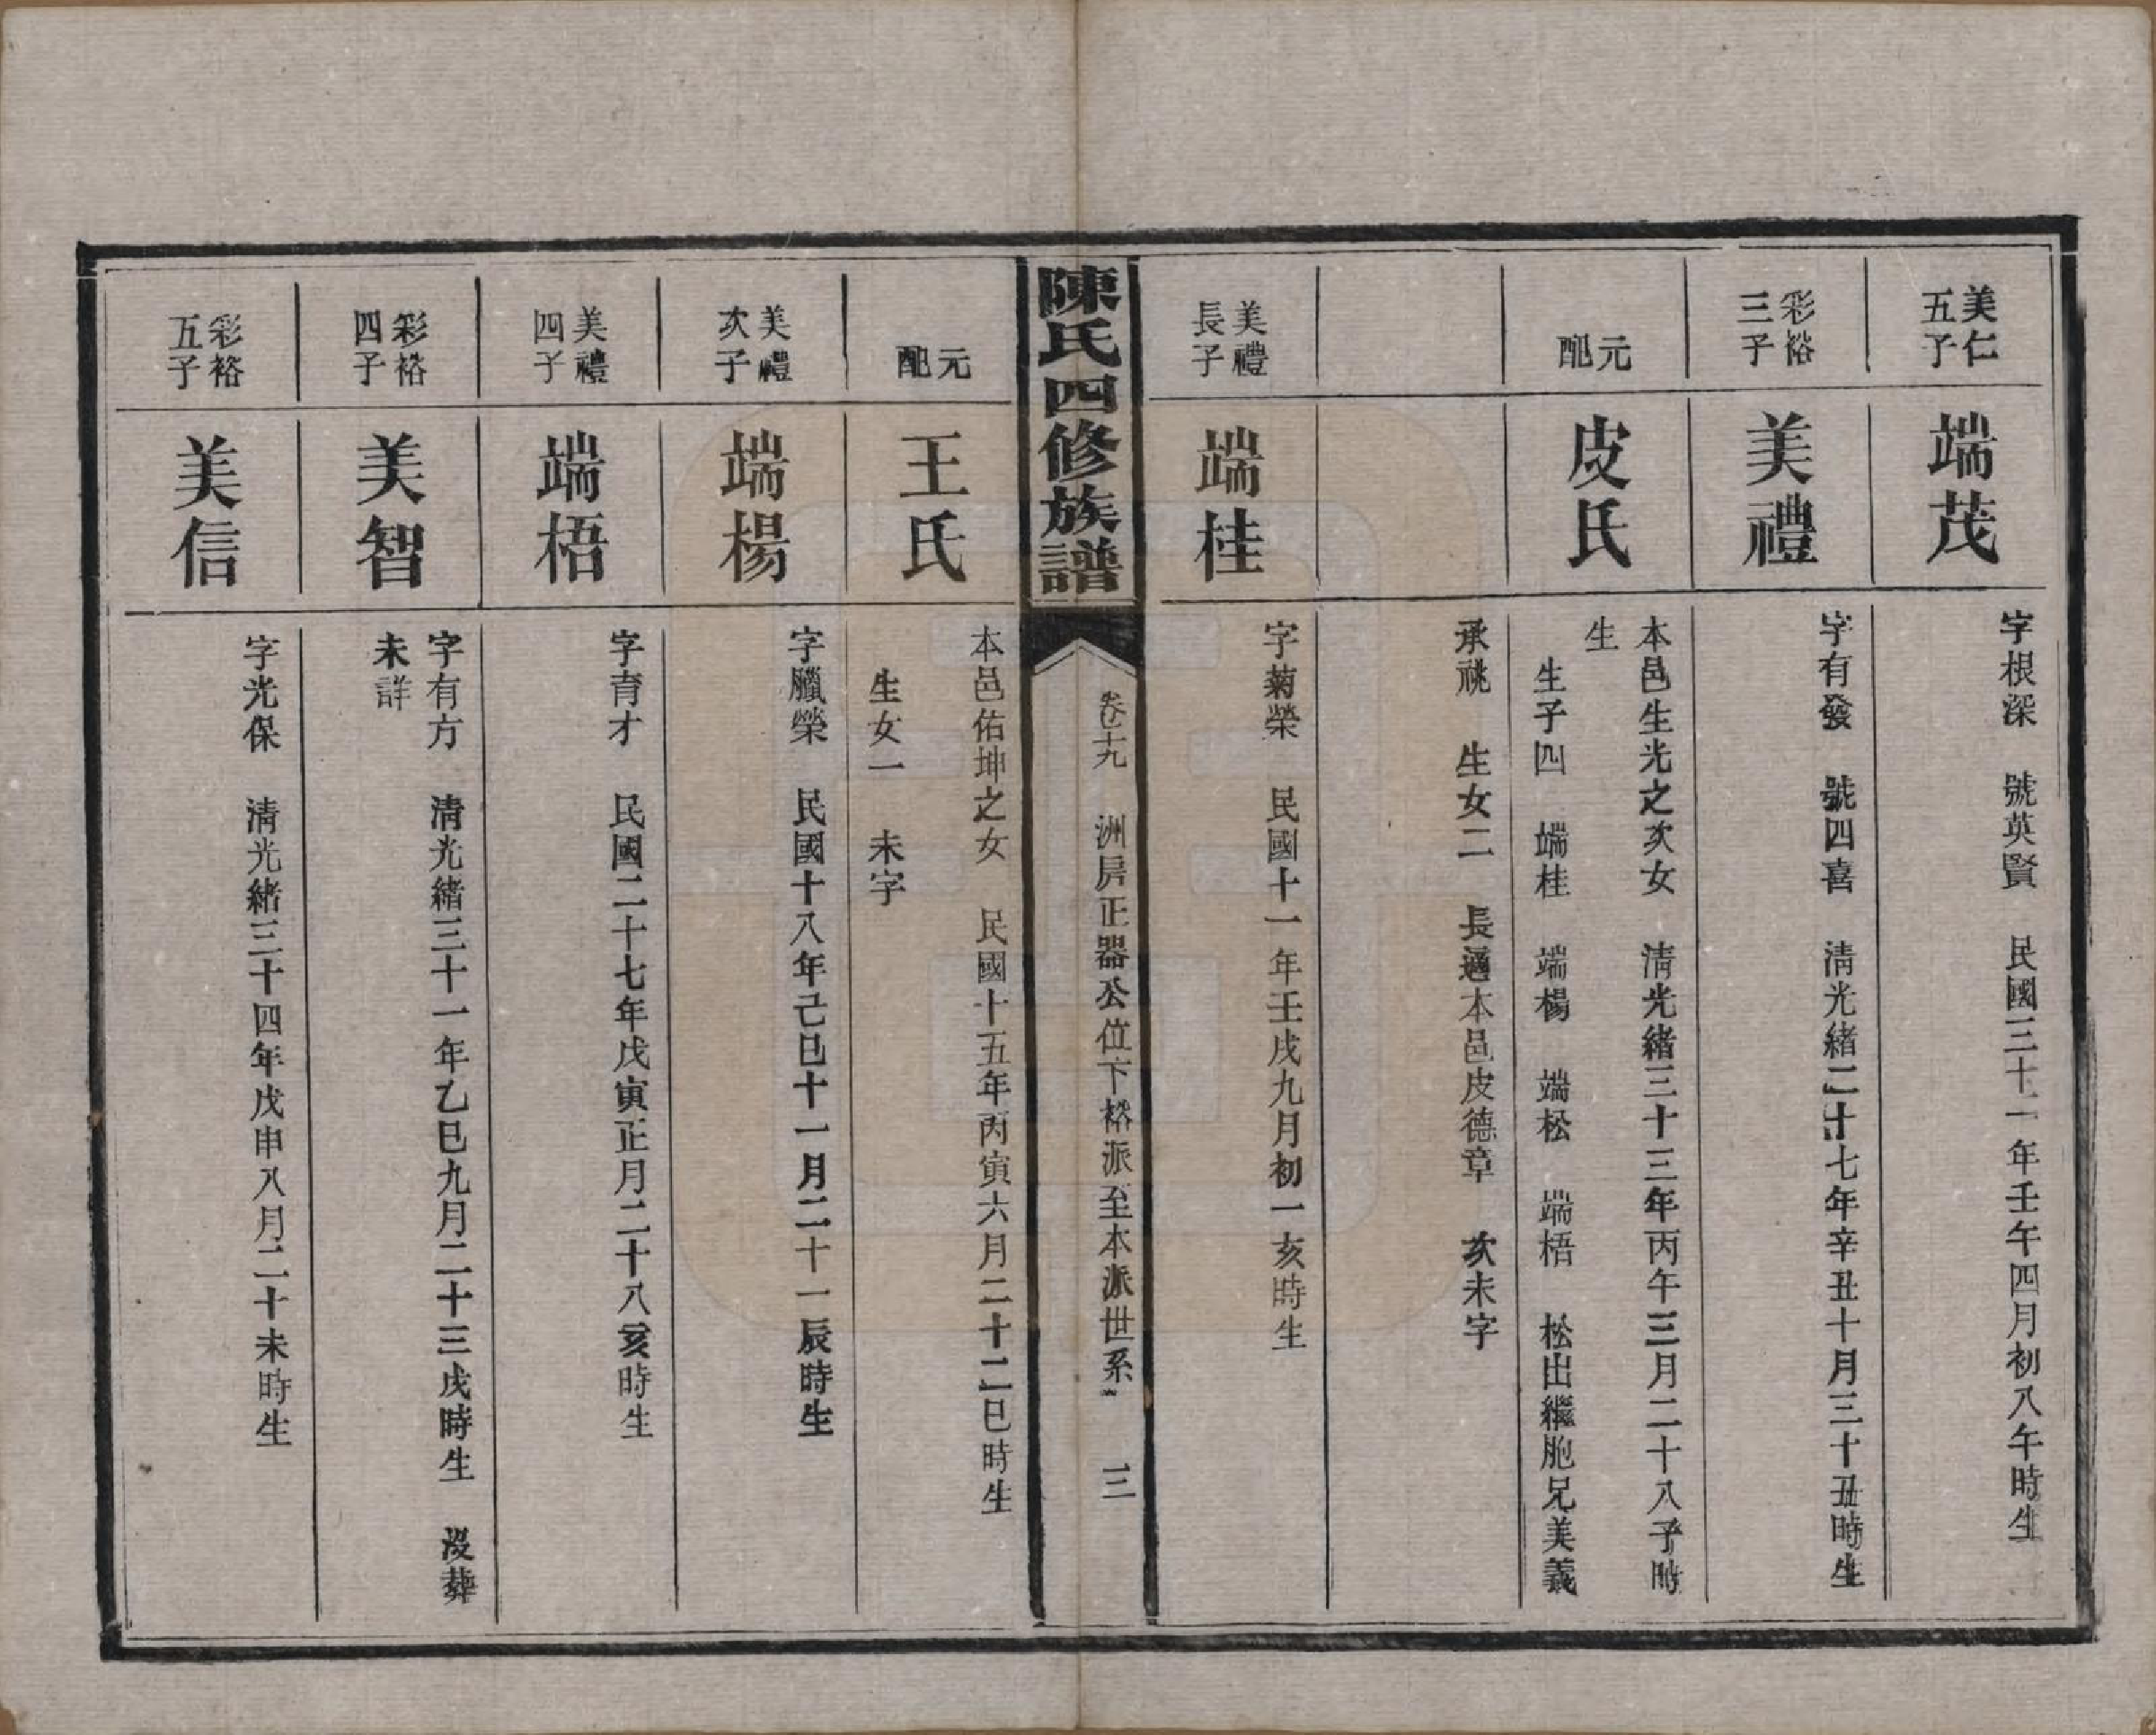 美仁
五子
端茂
字根深　號英賢　民國三十一年壬午四月初八午時生
彩裕
三子
美禮
字有發　號四喜　清光緒二十七年辛丑十月三十丑時生
元
配
皮氏
本邑生光之次女　清光緒三十三年丙午三月二十八子時
生
生子四　端桂　端楊　端松　端梧　松出繼胞兄美義
承祧　生女二　長適本邑皮德章　次未字
美禮
長子
端桂
字菊榮　民國十一年壬戌九月初一亥時生
陳氏四修族譜
卷十九　洲房正器公位下裕派至本派世系　三
元
配
王氏
本邑佑坤之女　民國十五年丙寅六月二十二巳時生
生女一　未字
美禮
次子
端楊
字臘榮　民國十八年己巳十一月二十一辰時生
美禮
四子
端梧
字育才　民國二十七年戊寅正月二十八亥時生
彩裕
四子
美智
字有方　清光緒三十一年乙巳九月二十三戌時生　歿葬
未詳
彩裕
五子
美信
字光保　清光緒三十四年戊申八月二十未時生